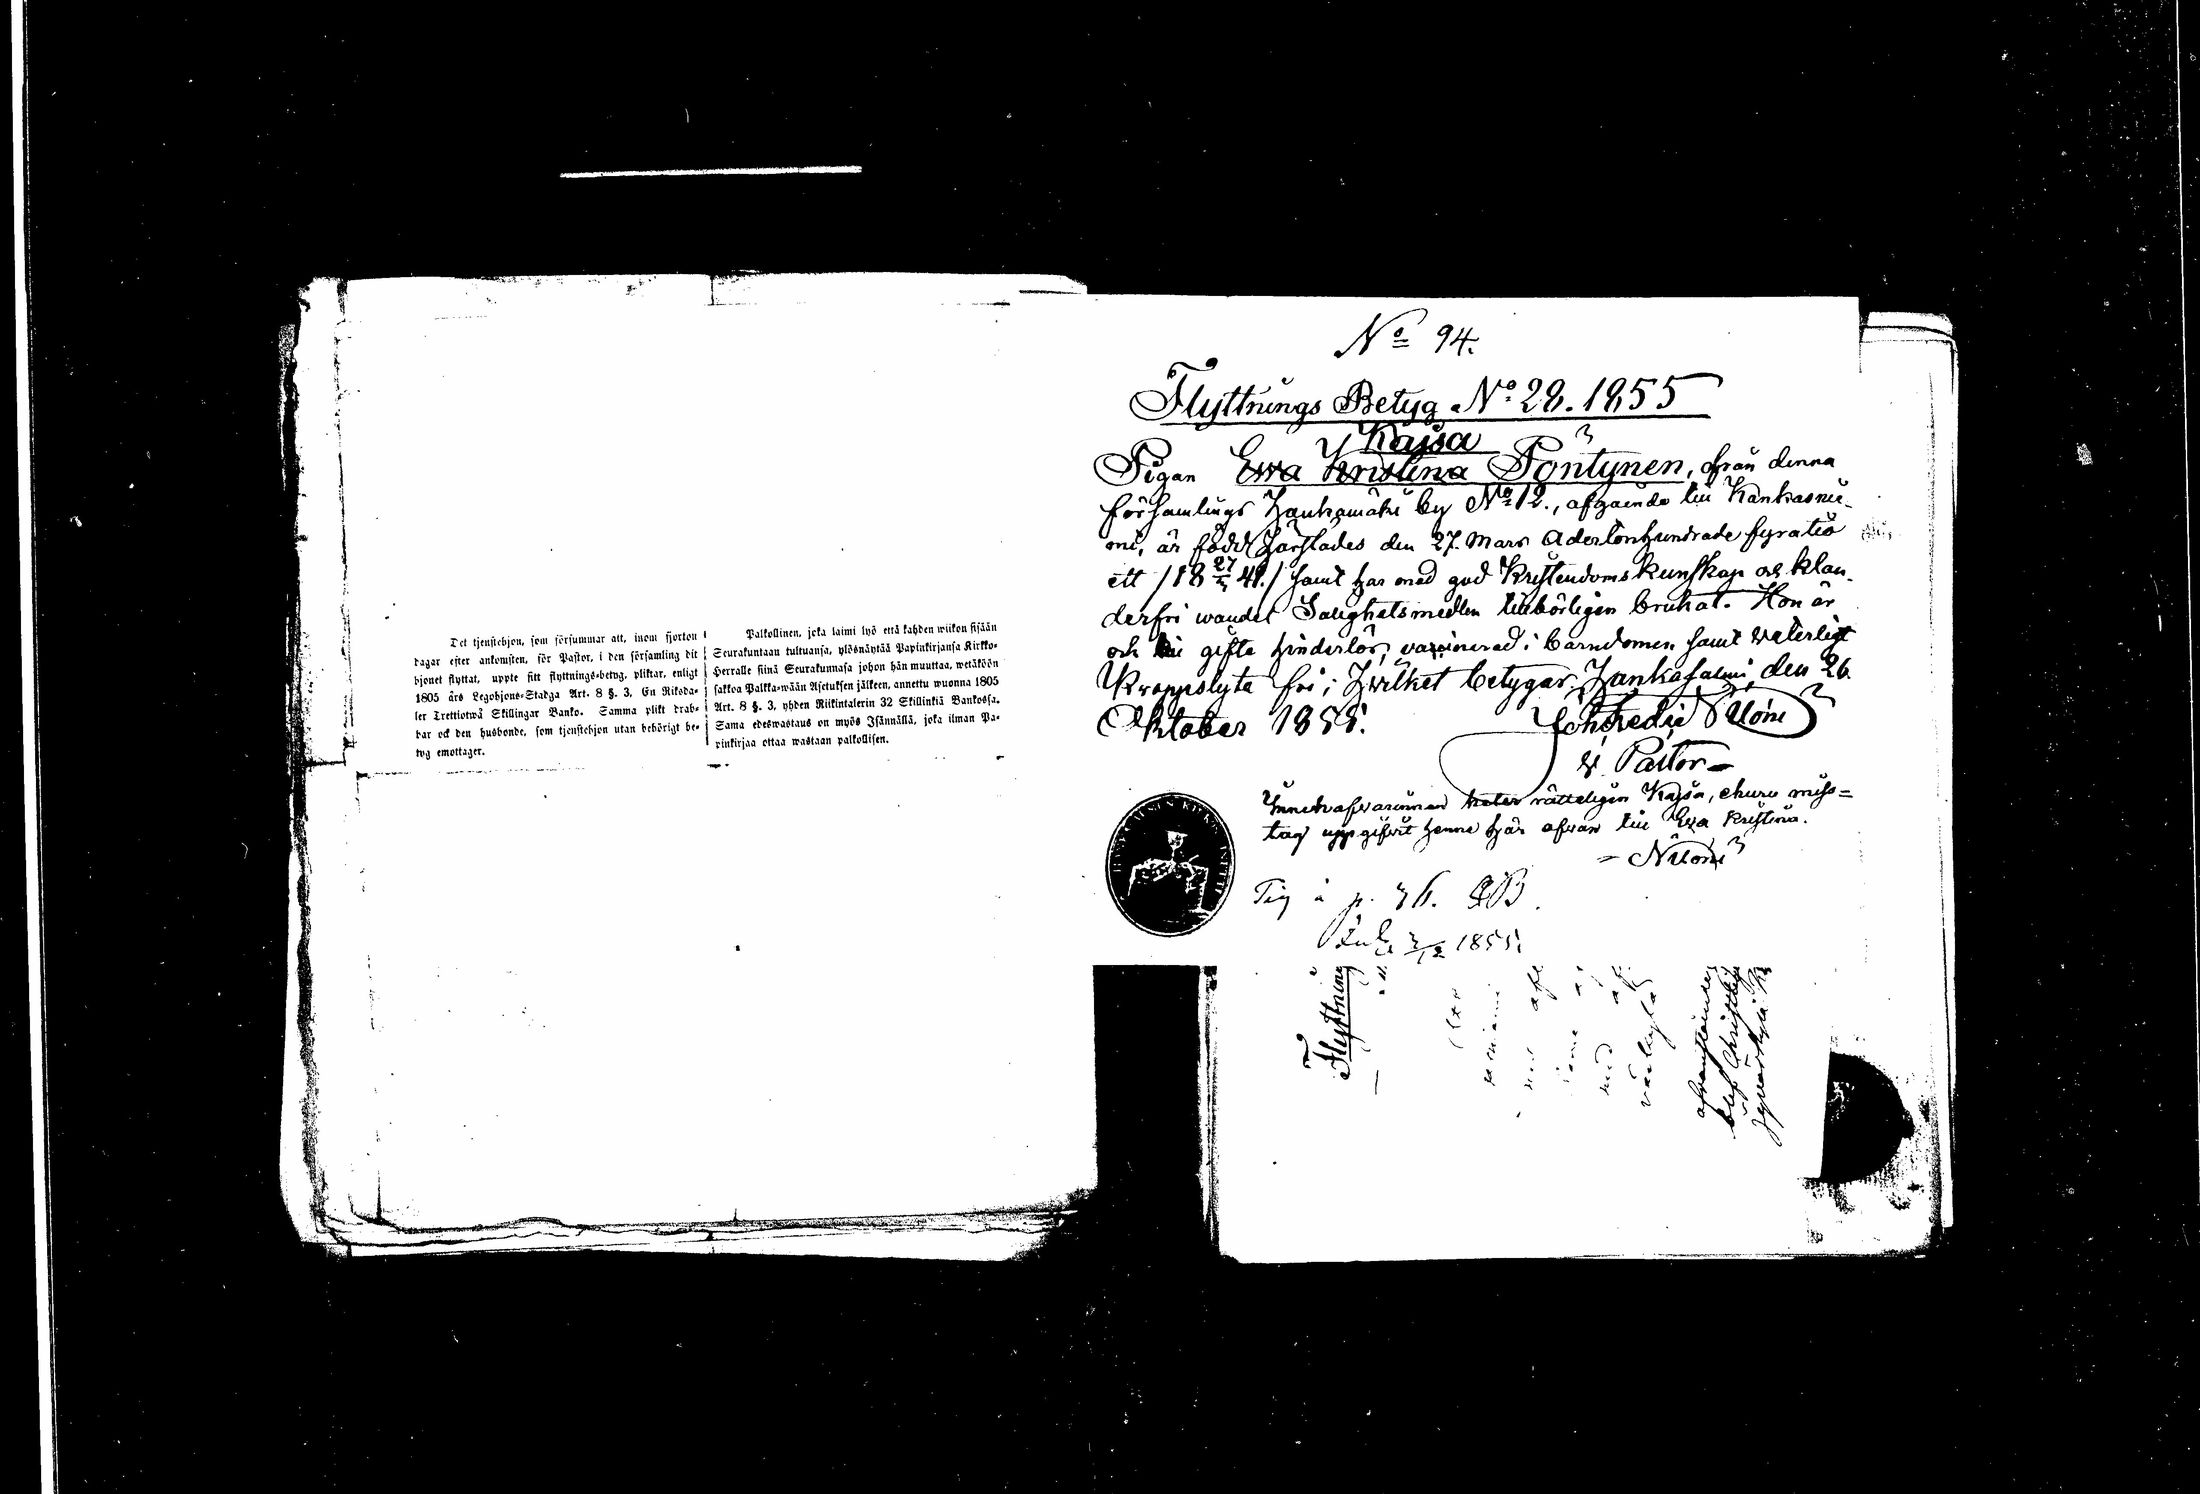 Det tjenstehjon, som försummar att, inom fjorton
dagar efter ankomsten, för Pastor, i den församling dit
hjonet flyttat, uppte sitt flyttnings-betyg, pliktar, enligt
1805 års Legohjons-Stadga Art. 8 §. 3, En Riksda-
ler Trettiotwå Skillingar Banko. Samma plikt drab-
bar ock den husbonde, som tjenstehjon utan behörigt be-
tyg emottager.
Palkollinen, joka laimi lyö että kahden wiikon sisään
Seurakuntaan tultuansa, ylösnäytää Papinkirjansa Kirkko-
Herralle siinä Seurakunnasa johon hän muuttaa, wetäköön
sakkoa Palkka-wään Asetuksen jälkeen, annettu wuonna 1805
Art. 8 §. 3, yhden Riikintalerin 32 Skillinkiä Bankossa.
Sama edeswastaus on myös Isännällä, joka ilman Pa-
pinkirjaa ottaa wastaan palkollisen.
No 94.
Flyttnings Betyg No 28. 1855
Kajsa
Pigan Ewa Kristina Pontynen, från denna
församlings Hankamäki by No 12., afgående till Kankasnie-
mi, är född härstädes den 27. Mars Adertonhundrade fyratio
ett /18 27/3 41./ samt har med god Kristendomskunskap och klan-
derfri wandel Salighetsmedlen tillbörligen brukat. Hon är
och till gifte hinderlös, vaccinerad i barndomen samt veterligt
Kroppslyte fri; Hwilket betygar, Hankasalmi, den 26.
Oktober 1855.
v. Pastor
heter rätteligen Kajsa, ehuru miss=
tag uppgifvit henne här ofvan till Ewa Kristina.
p. 36.
1855.
Flyttning